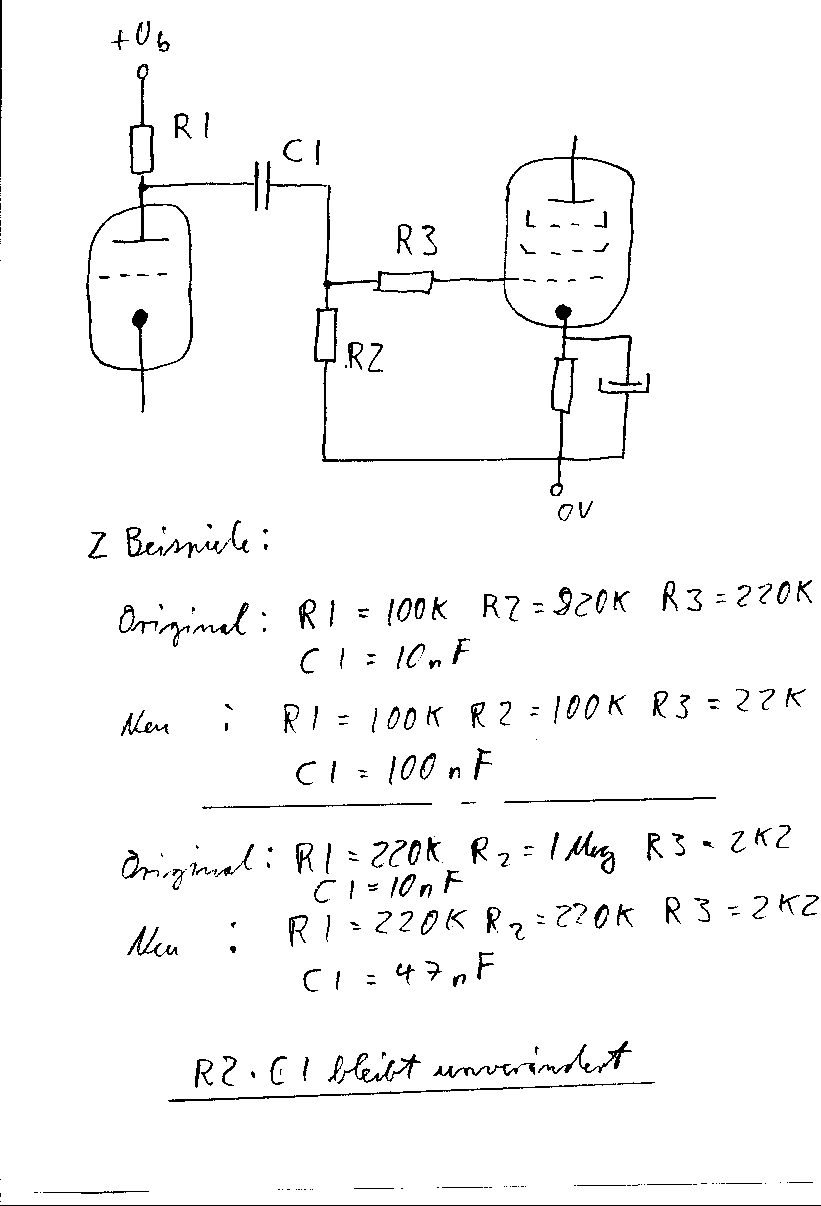 +Ub
R1
C1
R3
R2
0V
2 Beispiele:
Original: R1 = 100K R2 = 820K R3 = 220K
C1 = 10nF
Neu : R1 = 100K R2 = 100K R3 = 22K
C1 = 100nF
Original: R1 = 220K R2 = 1Meg R3 = 2K2
C1 = 10nF
Neu : R1 = 220K R2 = 220K R3 = 2K2
C1 = 47nF
R2 · C1 bleibt unverändert